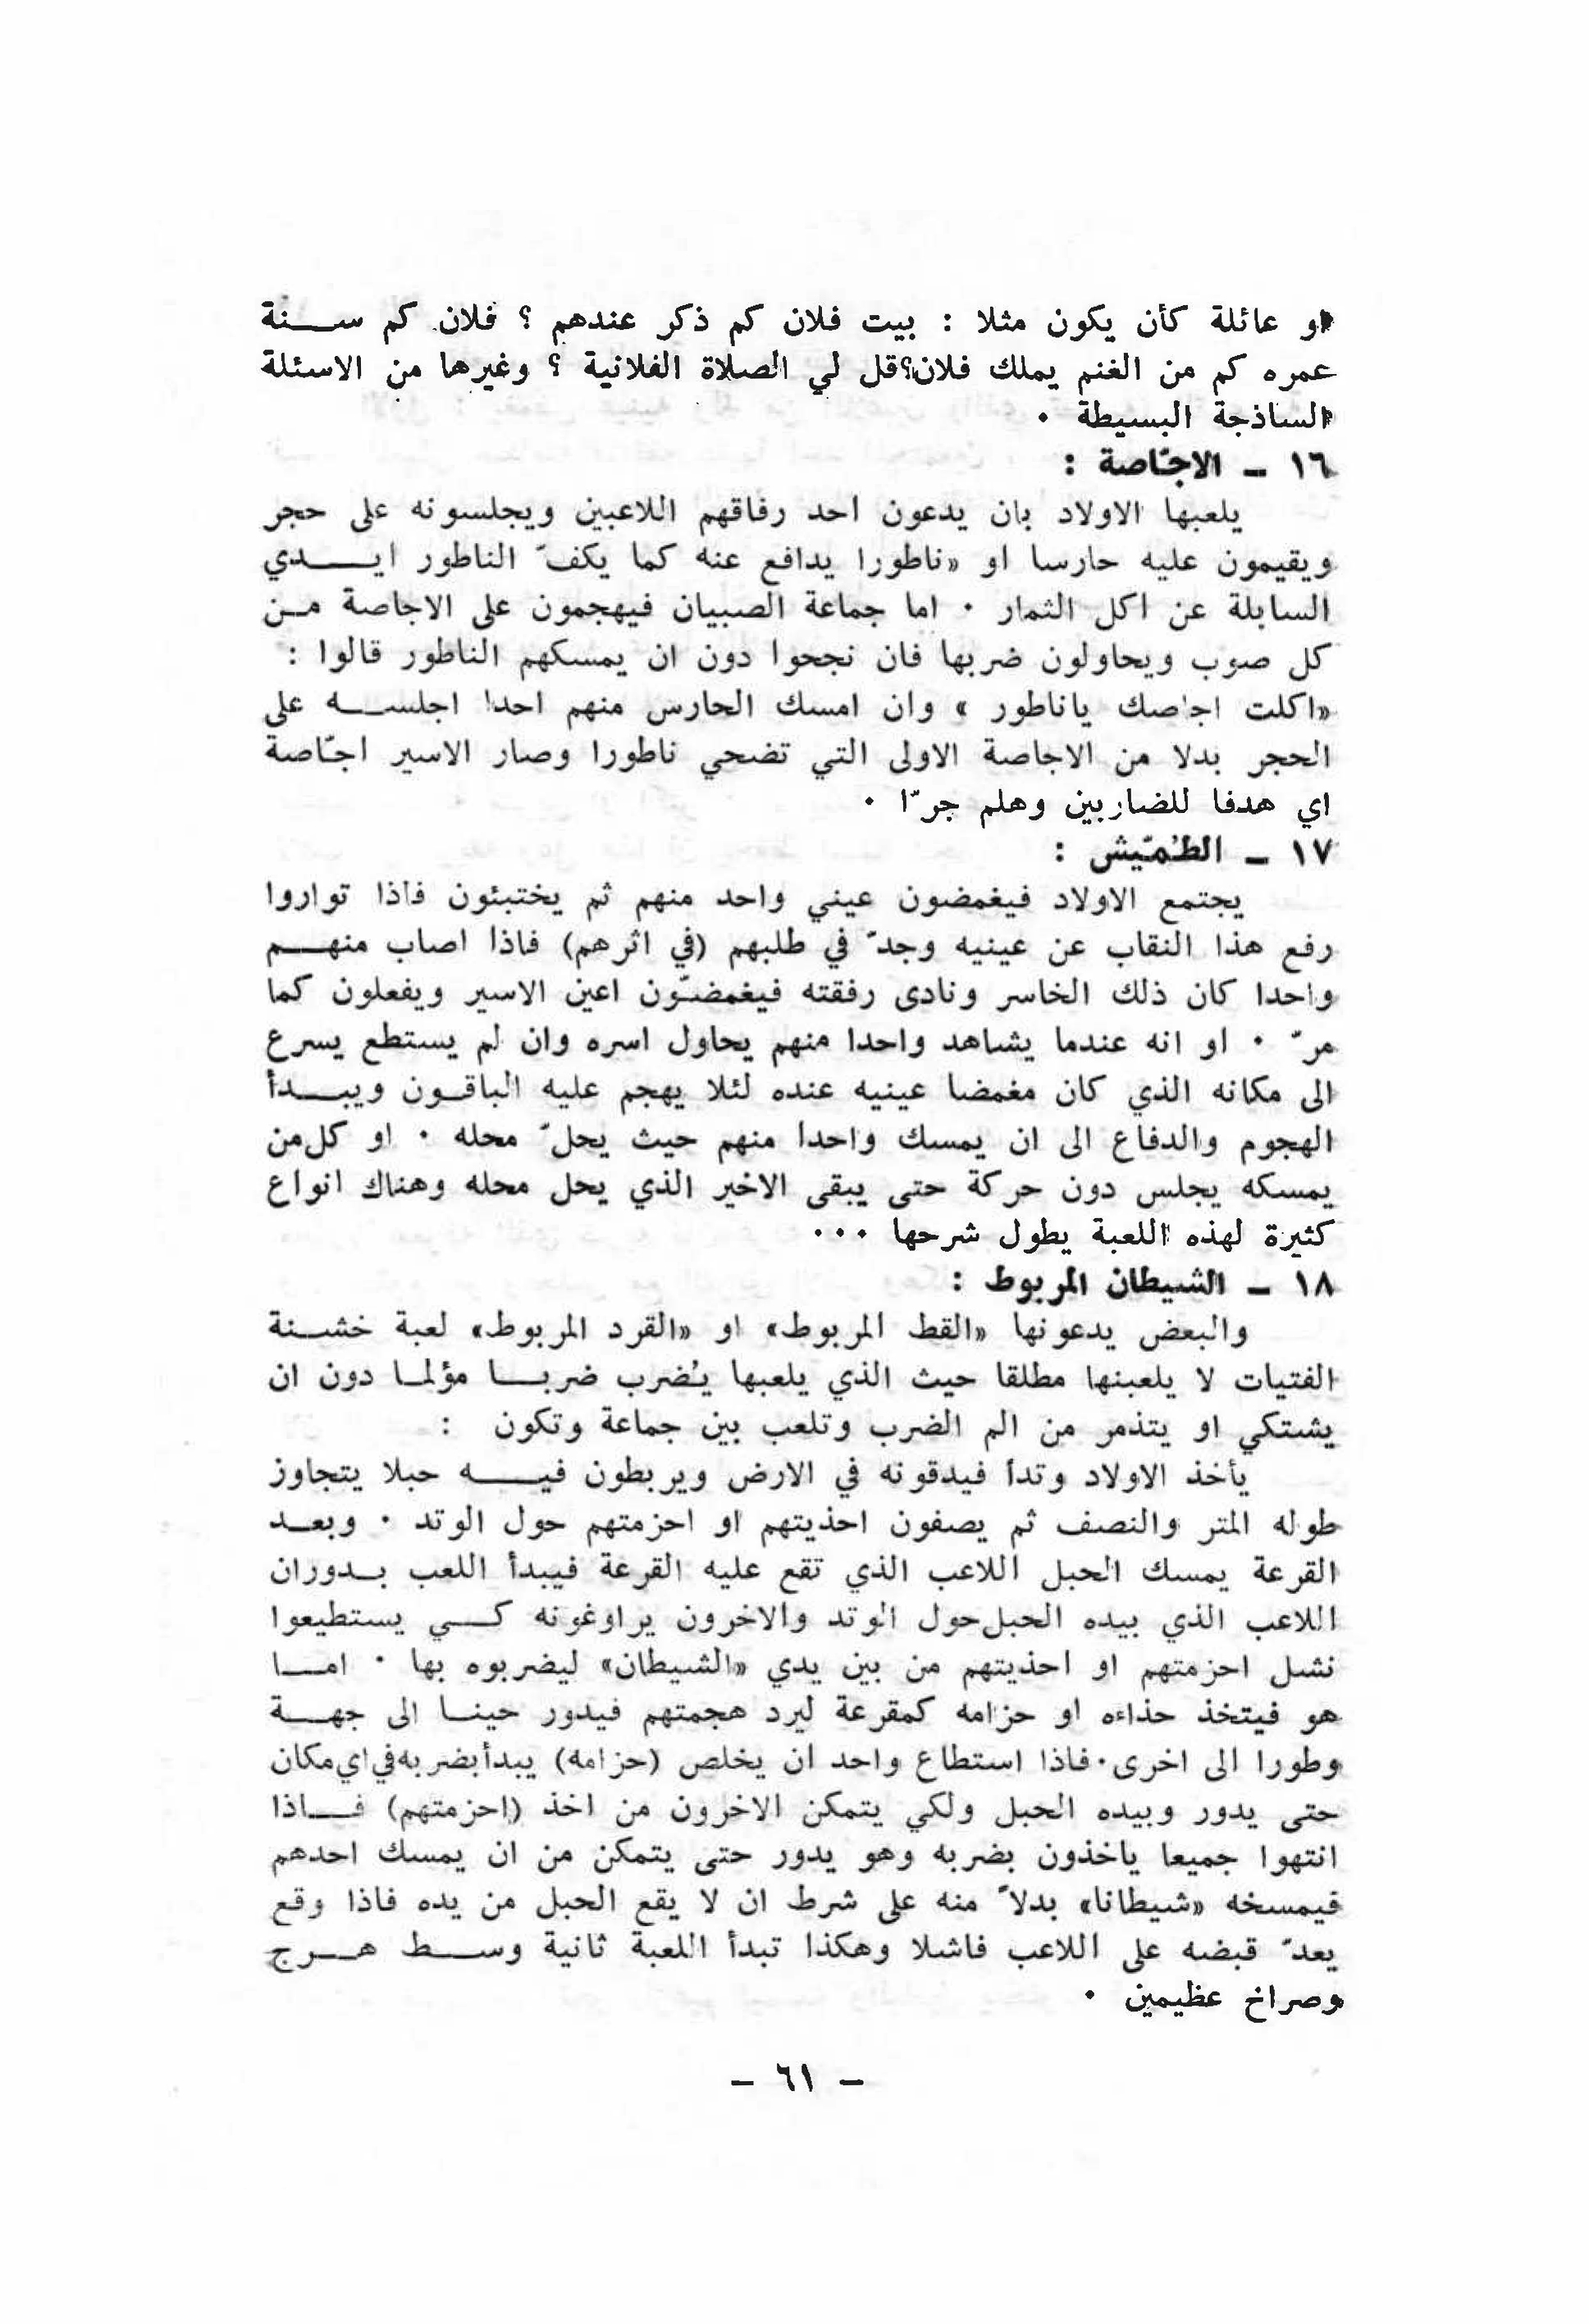 او عائلة كأن يكون مثلا : بيت فلان كم ذكر عندهم ؟ فلان كم سنة
عمره كم من الغنم يملك فلان؟قل لي الصلاة الفلانية ؟ وغيرها من الاسئلة
الساذجة البسيطة ٠
١٦ – الاجّاصة :
يلعبها الاولاد بان يدعون احد رفاقهم اللاعبين ويجلسونه على حجر
ويقيمون عليه حارسا او «ناطورا يدافع عنه كما يكفّ الناطور ايدي
السابلة عن اكل الثمار ٠ اما جماعة الصبيان فيهجمون على الاجاصة من
كل صوب ويحاولون ضربها فان نجحوا دون ان يمسكهم الناطور قالوا :
«اكلت اجاصك ياناطور » وان امسك الحارس منهم احدا اجلسه على
الحجر بدلا من الاجاصة الاولى التي تضحي ناطورا وصار الاسير اجّاصة
اي هدفا للضاربين وهلم جرّا ٠
١٧ – الطُمّيش :
يجتمع الاولاد فيغمضون عيني واحد منهم ثم يختبئون فاذا تواروا
رفع هذا النقاب عن عينيه وجدّ في طلبهم (في اثرهم) فاذا اصاب منهم
واحدا كان ذلك الخاسر ونادى رفقته فيغمضّون اعين الاسير ويفعلون كما
مرّ ٠ او انه عندما يشاهد واحدا منهم يحاول اسره وان لم يستطع يسرع
الى مكانه الذي كان مغمضا عينيه عنده لئلا يهجم عليه الباقون ويبدأ
الهجوم والدفاع الى ان يمسك واحدا منهم حيث يحلّ محله ٠ او كل من
يمسكه يجلس دون حركة حتى يبقى الاخير الذي يحل محله وهناك انواع
كثيرة لهذه اللعبة يطول شرحها ٠٠٠
١٨ – الشيطان المربوط :
والبعض يدعونها «القط المربوط» او «القرد المربوط» لعبة خشنة
الفتيات لا يلعبنها مطلقا حيث الذي يلعبها يُضرب ضربا مؤلما دون ان
يشتكي او يتذمر من الم الضرب وتلعب بين جماعة وتكون :
يأخذ الاولاد وتدأ فيدقونه في الارض ويربطون فيه حبلا يتجاوز
طوله المتر والنصف ثم يصفون احذيتهم او احزمتهم حول الوتد ٠ وبعد
القرعة يمسك الحبل اللاعب الذي تقع عليه القرعة فيبدأ اللعب بدوران
اللاعب الذي بيده الحبل حول الوتد والاخرون يراوغونه كي يستطيعوا
نشل احزمتهم او احذيتهم من بين يدي «الشيطان» ليضربوه بها ٠ اما
هو فيتخذ حذاءه او حزامه كمقرعة ليرد هجمتهم فيدور حينا الى جهة
وطورا الى اخرى ٠ فاذا استطاع واحد ان يخلص (حزامه) يبدأ بضربه في اي مكان
حتى يدور وبيده الحبل ولكي يتمكن الاخرون من اخذ (احزمتهم) فاذا
انتهوا جميعا ياخذون بضربه وهو يدور حتى يتمكن من ان يمسك احدهم
فيمسخه «شيطانا» بدلاً منه على شرط ان لا يقع الحبل من يده فاذا وقع
يعدّ قبضه على اللاعب فاشلا وهكذا تبدأ اللعبة ثانية وسط هرج
وصراخ عظيمين ٠
– ٦١ –